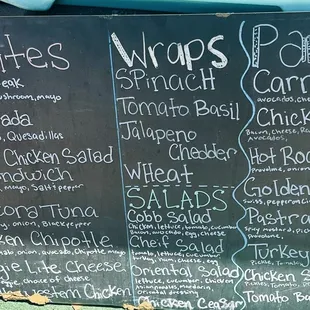 ites
eak
ushroom, mayo
ada
, Quesadillas
Chicken Salad
ndwich
, mayo, Salt & pepper
ora Tuna
nion, Black pepper
ken Chipotle
onion, avocado, Chipotle mayo
gie Lite cheese
choice of cheese
stern Chicken
Wraps
SPinacH
Tomato Basil
Jalapeno
Chedder
WHeat
SALADS
Cobb salad
Chicken, lettuce, tomato, cucumber
Bacon, avocado, egg, cheese
Cheif Salad
lettuce, tomato, cucumber
Oriental Salad
lettuce, cucumber
Chicken
oriental dressing
Chicken Ceasar
Pa
Carn
avocados, ches
Chick
Bacon, cheese, Ra
Avocados,
Hot Roa
Provolone, onion
Golden
Swiss, pepper
Pastra
Spicy mustard, pi
Provolone,
Turkey
Pickles, Tomato
Chicken S
Pickles, Tomato
Tomato Ba